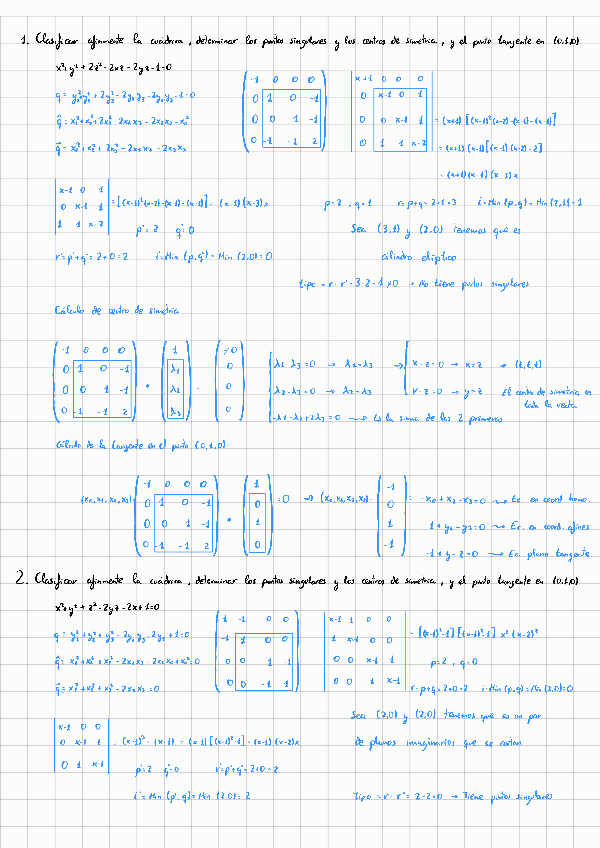 1. Clasificar afinmente la cuádrica, determinar los puntos singulares y los centros de simetría, y el punto tangente en (0,1,0)
x²+y²+2z²-2xz-2yz-1=0
q = y₁²+y₂²+2y₃²-2y₁y₃-2y₂y₃-1=0
q̂ = x₁²+x₂²+2x₃²-2x₁x₃-2x₂x₃-x₀²
q⃗ = x₁²+x₂²+2x₃²-2x₁x₃-2x₂x₃
-1 0 0 0
0 1 0 -1
0 0 1 -1
0 -1 -1 2
x+1 0 0 0
0 x-1 0 1
0 0 x-1 1
0 1 1 x-2
= (x+1) [(x-1)²(x-2)-(x-1)-(x-1)]
= (x+1)(x-1)[(x-1)(x-2)-2]
= (x+1)(x-1)(x-3)x
x-1 0 1
0 x-1 1
1 1 x-2
= [(x-1)²(x-2)-(x-1)-(x-1)] = (x-1)(x-3)x
p=2, q=1 r=p+q=2+1=3 i=Min(p,q)=Min(2,1)=1
p'=2 q'=0
Sea (3,1) y (2,0) tenemos que es
r'=p'+q'=2+0=2 i'=Min(p',q')=Min(2,0)=0
cilindro elíptico
tipo = r-r'=3-2=1≠0 → No tiene puntos singulares
Cálculo de centro de simetría
-1 0 0 0
0 1 0 -1
0 0 1 -1
0 -1 -1 2
1
λ1
λ2
λ3
≠0
0
0
0
λ1-λ3=0 → λ1=λ3
λ2-λ3=0 → λ2=λ3
-λ1-λ2+2λ3=0 → Es la suma de las 2 primeras
x-z=0 → x=z → (t,t,t)
y-z=0 → y=z El centro de simetría es
toda la recta
Cálculo de la tangente en el punto (0,1,0)
(x₀,x₁,x₂,x₃)
-1 0 0 0
0 1 0 -1
0 0 1 -1
0 -1 -1 2
1
0
1
0
=0 → (x₀,x₁,x₂,x₃)
-1
0
1
-1
= -x₀+x₂-x₃=0 → Ec. en coord homo.
-1+y₂-y₃=0 → Ec. en coord. afines
-1+y-z=0 → Ec. plano tangente
2. Clasificar afinmente la cuádrica, determinar los puntos singulares y los centros de simetría, y el punto tangente en (0,1,0)
x²+y²+z²-2yz-2x+1=0
q = y₁²+y₂²+y₃²-2y₂y₃-2y₁+1=0
q̂ = x₁²+x₂²+x₃²-2x₂x₃-2x₁x₀+x₀²=0
q⃗ = x₁²+x₂²+x₃²-2x₂x₃=0
1 -1 0 0
-1 1 0 0
0 0 1 -1
0 0 -1 1
x-1 1 0 0
1 x-1 0 0
0 0 x-1 1
0 0 1 x-1
= [(x-1)²-1][(x-1)²-1] x²(x-2)²
p=2, q=0
r=p+q=2+0=2 i=Min(p,q)=Min(2,0)=0
x-1 0 0
0 x-1 1
0 1 x-1
= (x-1)³-(x-1) = (x-1)[(x-1)²-1] = (x-1)(x-2)x
Sea (2,0) y (2,0) tenemos que es un par
de planos imaginarios que se cortan
p'=2 q'=0 r'=p'+q'=2+0=2
i'=Min(p',q')=Min(2,0)=2
Tipo = r-r'=2-2=0 → Tiene puntos singulares